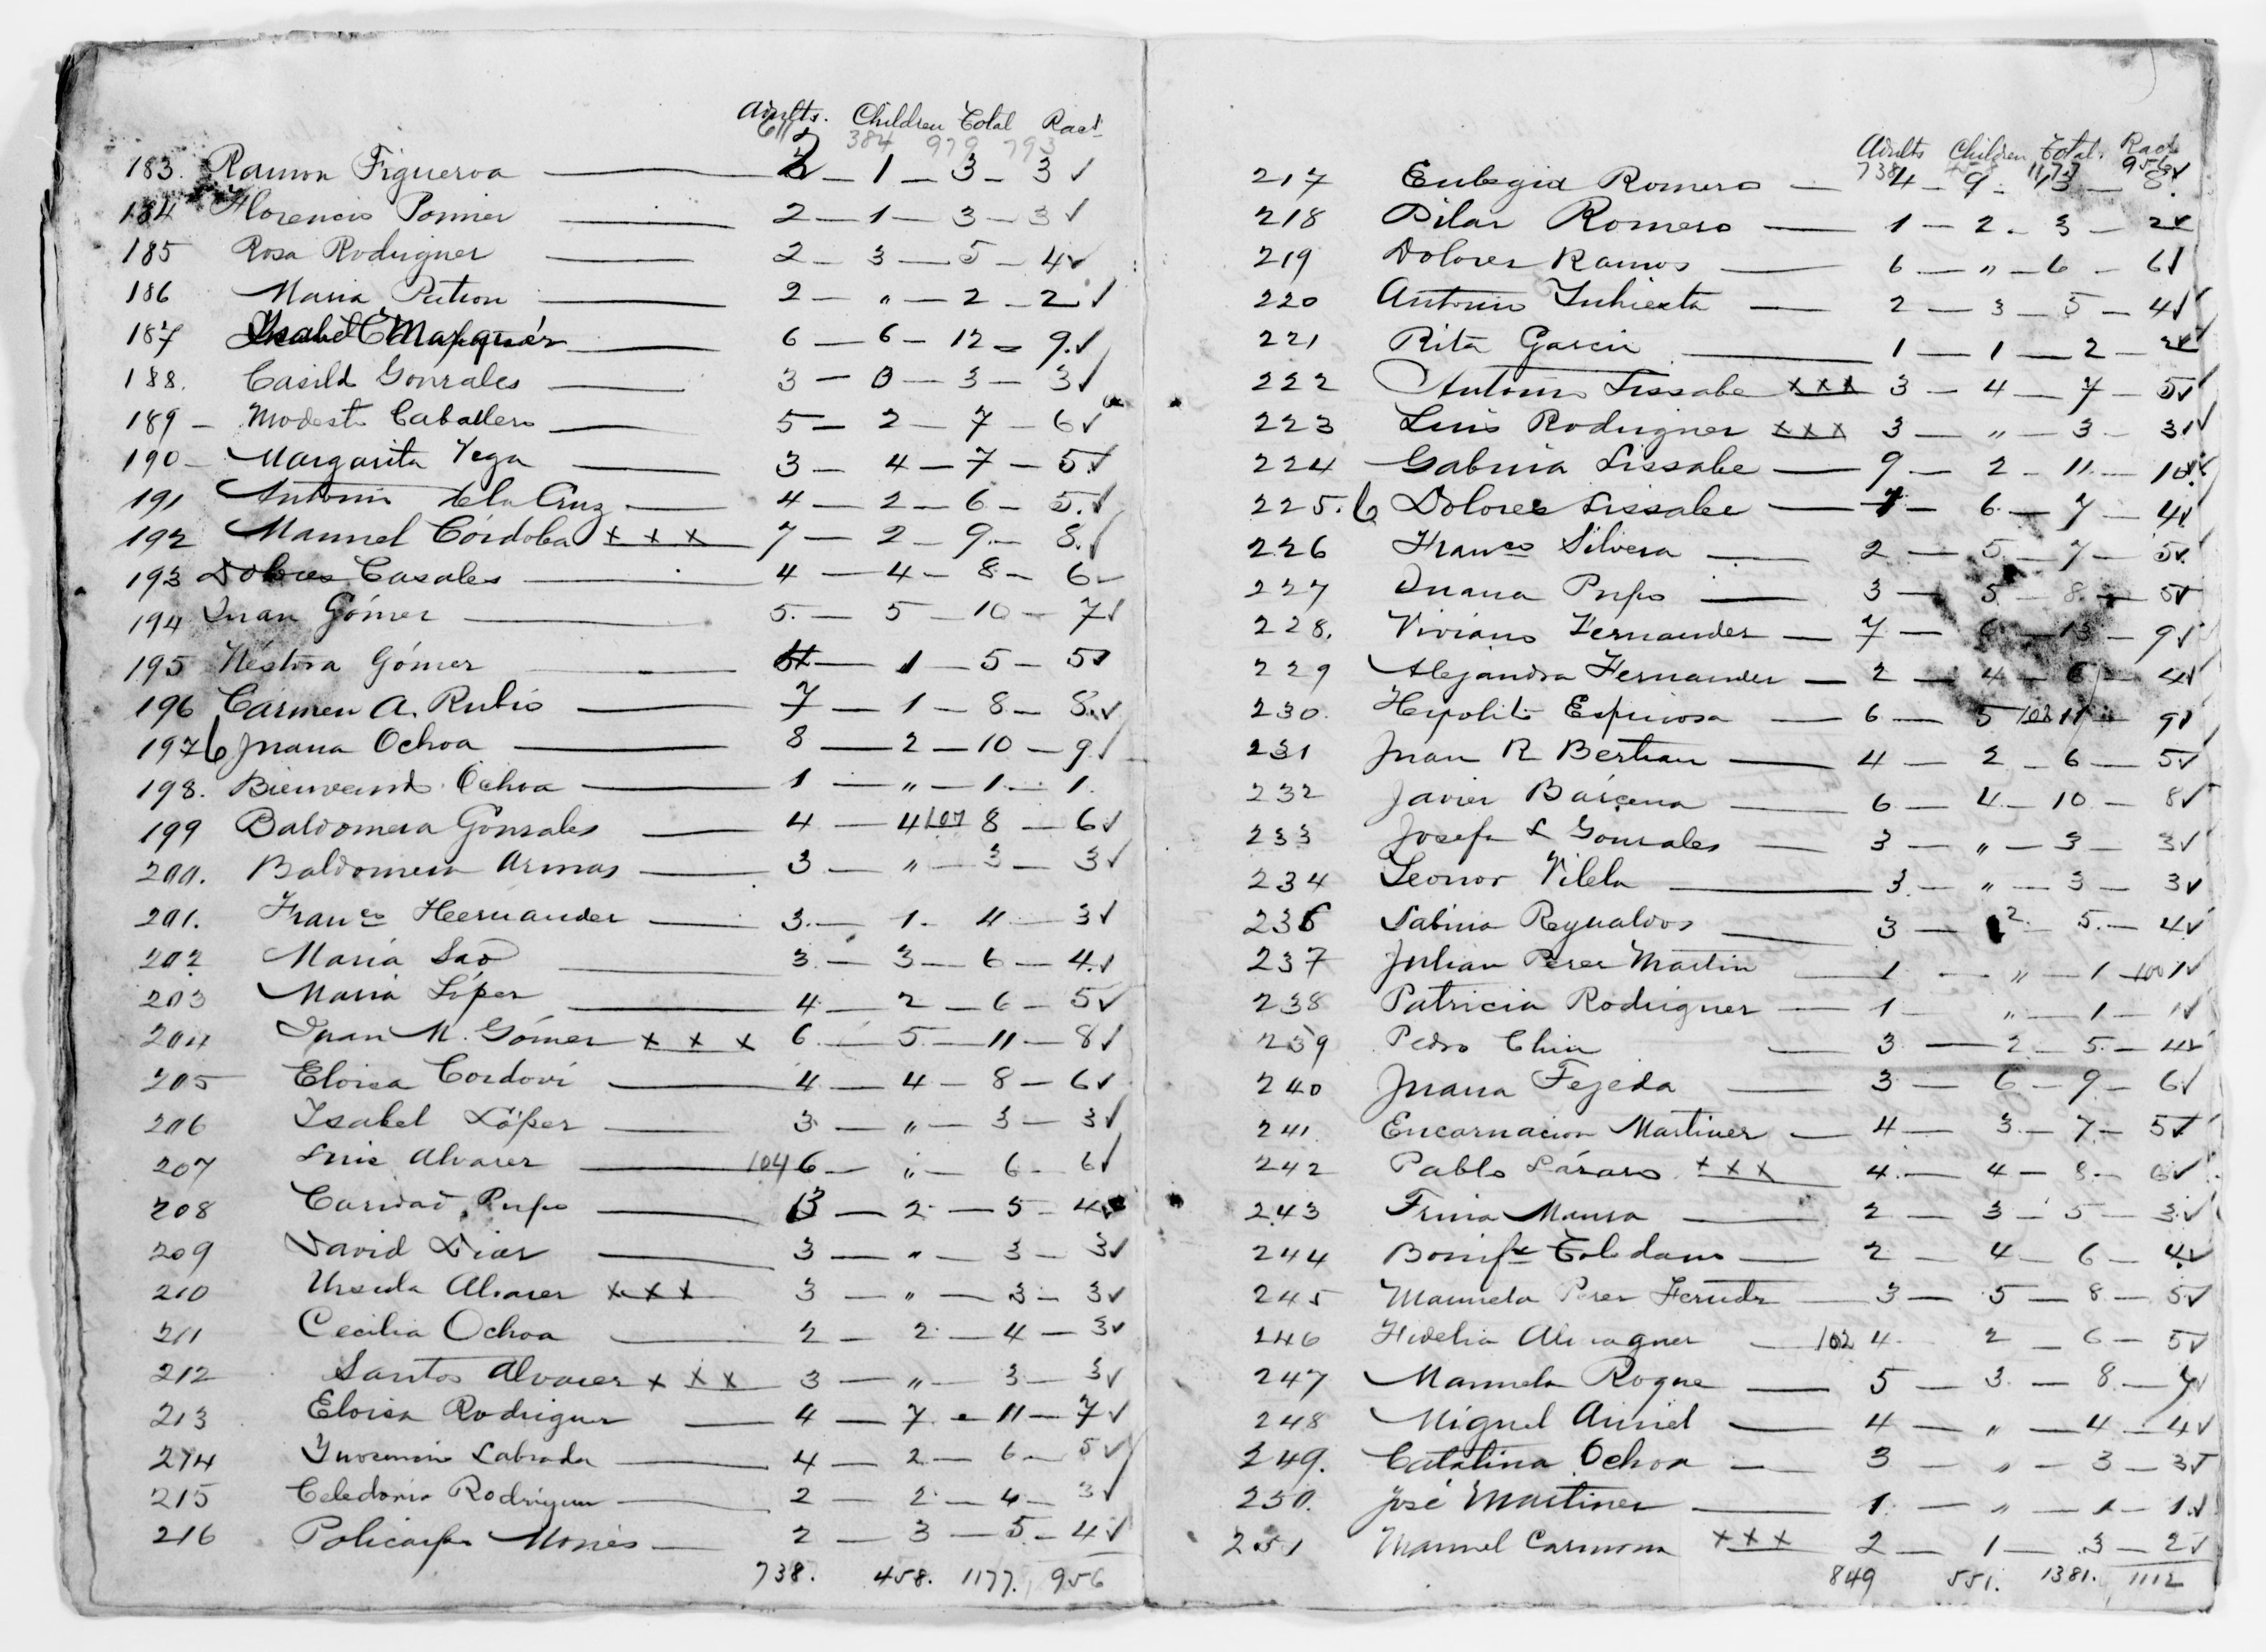 Adults. Children Total Ract.
611 384 979 793
183. Ramon Figueroa — 2 — 1 — 3 — 3 ✓
184 Florencio Ponner — 2 — 1 — 3 — 3 ✓
185 Rosa Rodriguez — 2 — 3 — 5 — 4 ✓
186 Maria Patron — 2 — " — 2 — 2 ✓
187 Ysabel C Marquéz — 6 — 6 — 12 — 9. ✓
188. Casild Gonzales — 3 — 0 — 3 — 3 ✓
189 — Modesto Caballero — 5 — 2 — 7 — 6 ✓
190 — Margarita Vega — 3 — 4 — 7 — 5 ✓
191 Antonio de la Cruz — 4 — 2 — 6 — 5. ✓
192 Manuel Córdoba x x x 7 — 2 — 9 — 8. ✓
193 Dolores Casales — 4 — 4 — 8 — 6 —
194 Juan Gómez — 5. — 5 — 10 — 7 ✓
195 Néstora Gómez — 4 — 1 — 5 — 5 ✓
196 Cármen A. Rubio — 7 — 1 — 8 — 8. ✓
197 6 Juana Ochoa — 8 — 2 — 10 — 9 ✓
198. Bienvenid Ochoa — 1 — " — 1 — 1.
199 Baldomera Gonzales — 4 — 4 107 8 — 6 ✓
200. Baldomera Armas — 3 — " — 3 — 3 ✓
201. Franco Heernandez — 3. — 1. 4 — 3 ✓
202 Maria Sao — 3 — 3 — 6 — 4. ✓
203 Maria López — 4 — 2 — 6 — 5 ✓
204 Juan M. Gómez x x x 6 — 5 — 11 — 8 ✓
205 Eloisa Cordoví — 4 — 4 — 8 — 6 ✓
206 Isabel López — 3 — " — 3 — 3 ✓
207 Luis Alvarez — 104 6 — " — 6 — 6 ✓
208 Caridad Pupo — 3 — 2 — 5 — 4 ✓
209 David Diaz — 3 — " — 3 — 3 ✓
210 Ursula Alvarez x x x 3 — " — 3 — 3 ✓
211 Cecilia Ochoa — 2 — 2 — 4 — 3 ✓
212 Santos Alvarez x x x 3 — " — 3 — 3 ✓
213 Eloisa Rodriguez — 4 — 7 — 11 — 7 ✓
214 Labrada — 4 — 2 — 6 — 5 ✓
215 Celedonia Rodriguez — 2 — 2 — 4 — 3 ✓
216 Policarpo — 2 — 3 — 5 — 4 ✓
738. 458. 1177. 956
Adults Children Total. Rac
738 1177 956
217 Eulogia Romero — 4 — 9 — 13 — 8. ✓
218 Pilar Romero — 1 — 2 — 3 — 2 ✓
219 Dolores Ramos — 6 — " — 6 — 6 ✓
220 Antonio — 2 — 3 — 5 — 4 ✓
221 Rita Garcia — 1 — 1 — 2 — 2 ✓
222 Antonio Lissabe x x x 3 — 4 — 7 — 5 ✓
223 Luis Rodriguez x x x 3 — " — 3 — 3 ✓
224 Gabina Lissabe — 9 — 2 — 11 — 10 ✓
225. 6 Dolores Lissabe — 1 — 6 — 7 — 4 ✓
226 Franco Silvera — 2 — 5 — 7 — 5 ✓
227 Juana Pupo — 3 — 5 — 8 — 5 ✓
228. Viviano Fernandez — 7 — 6 — 13 — 9 ✓
229 Alejandra Fernandez — 2 — 4 — 6 — 4 ✓
230. Hypolito Espinosa — 6 — 5 108 11 — 9 ✓
231 Juan R Bertran — 4 — 2 — 6 — 5 ✓
232 Javier Bárcena — 6 — 4 — 10 — 8 ✓
233 Josefa L Gonzales — 3 — " — 3 — 3 ✓
234 Leonor Vilela — 3. — " — 3 — 3 ✓
236 Sabina Reynaldos — 3 — 2. 5. — 4 ✓
237 Julian Perez Martin — 1 — " — 1 100 1 ✓
238 Patricia Rodriguez — 1 — " — 1 — 1 ✓
239 Pedro Chin — 3 — 2 — 5. — 4 ✓
240 Juana Tejeda — 3 — 6 — 9 — 6 ✓
241 Encarnacion Martinez — 4 — 3 — 7 — 5 ✓
242 Pablo Lázaro x x x 4. — 4 — 8 — 6 ✓
243 Maura — 2 — 3 — 5 — 3 ✓
244 Bonifa Toledano — 2 — 4 — 6 — 4 ✓
245 Manuela Perez Ferndz — 3 — 5 — 8 — 5 ✓
246 Fidelia — 102 4. 2 — 6 — 5 ✓
247 Manuela Roque — 5 — 3. — 8. — 7 ✓
248 Miguel — 4 — " — 4 — 4 ✓
249. Catalina Ochoa — 3 — " — 3 — 3 ✓
250. José Martinez — 1. — " — 1 — 1 ✓
251 Manuel Carmona x x x 2 — 1 — 3 — 2 ✓
849 551. 1381. 1112